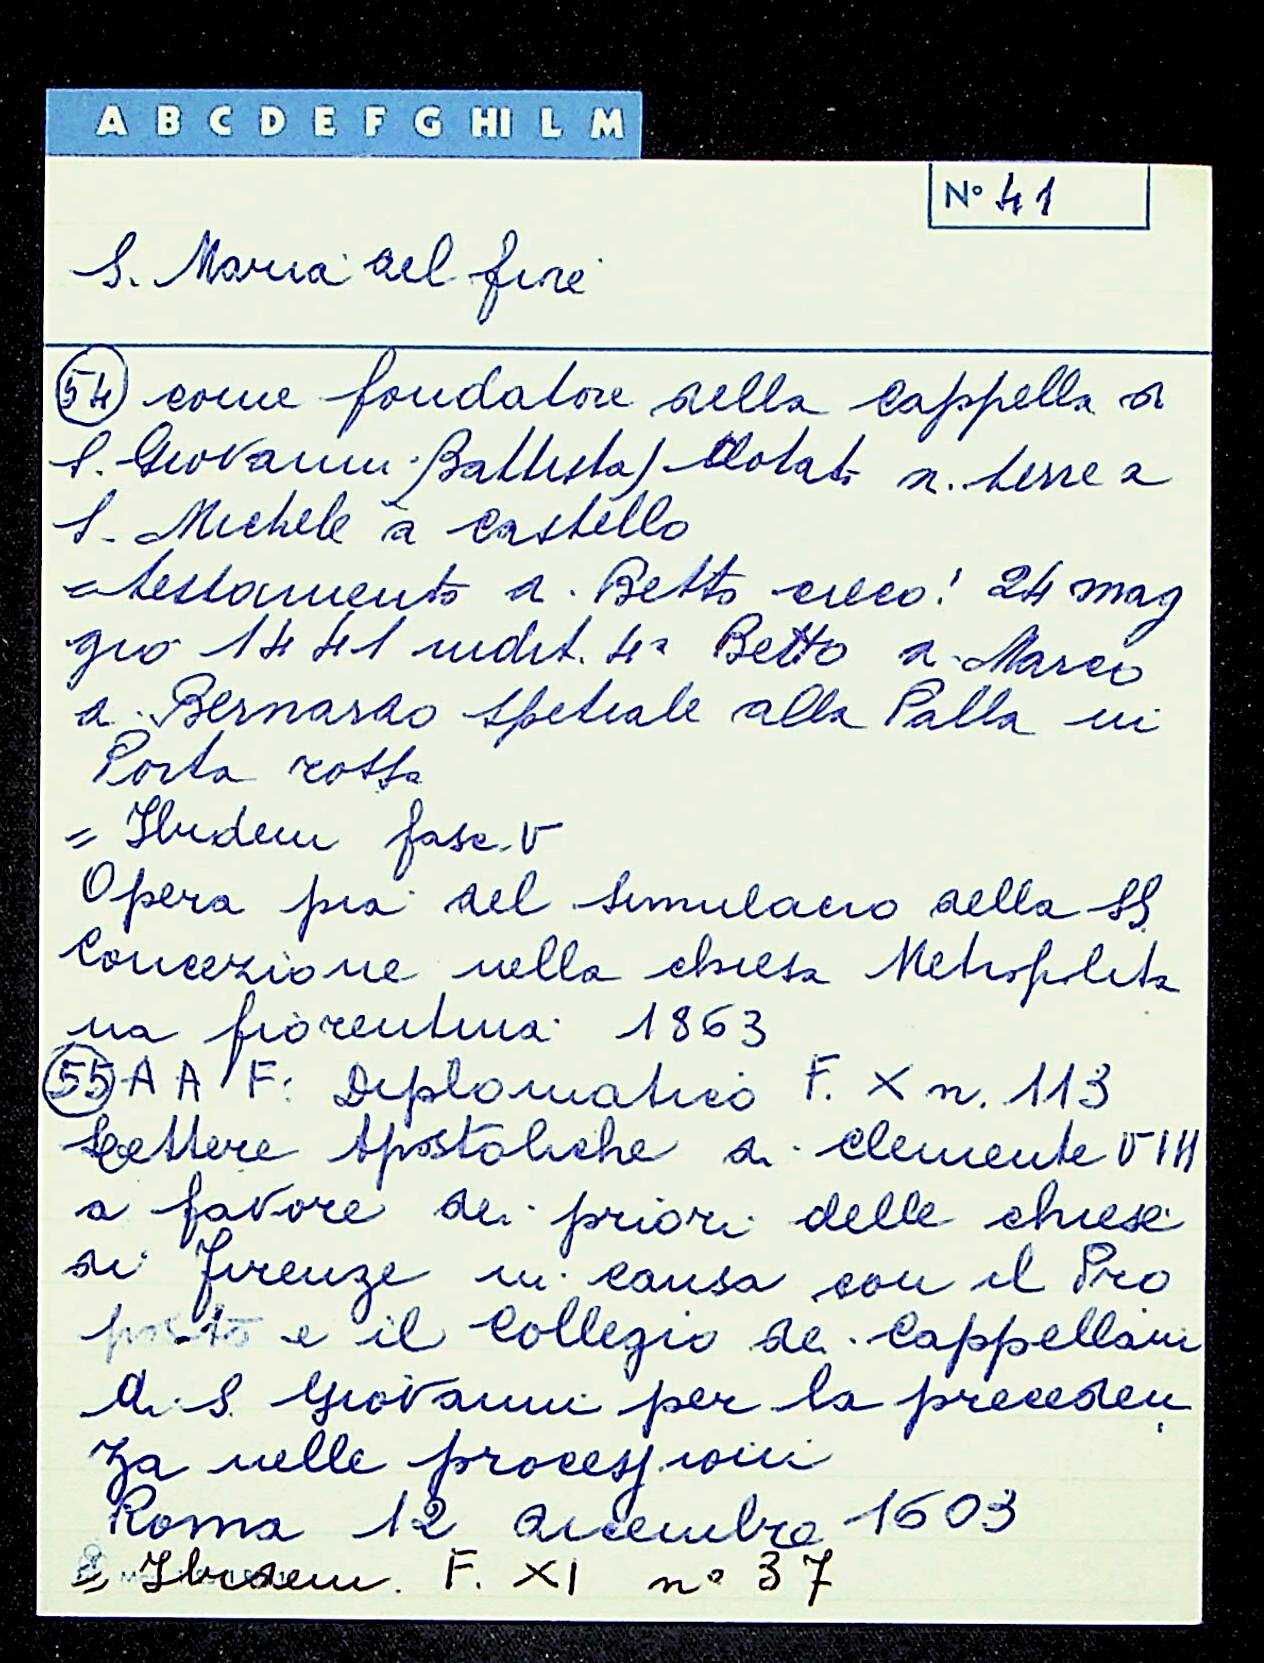 A B C D E F G HI L M
N° 41
S. Maria del fiore
54 come fondatore della Cappella di
S. Giovanni Battista) dotat. di terre a
S. Michele a Castello
= testamento di Betto cieco! 24 mag
gio 1441 indit. 4a Betto di Marco
di Bernardo speziale alla Palla in
Porta rossa
= Ibidem fasc. V
Opera pia del simulacro della SS.
Concezione nella chiesa Metropolita
na fiorentina 1863
55 A A F: Diplomatico F. X n. 113
Lettere Apostoliche di Clemente VIII
a favore dei priori delle chiese
di Firenze in causa con il Pro
posto e il Collegio dei Cappellani
di S. Giovanni per la preceden
za nelle processioni
Roma 12 dicembre 1603
= Ibidem. F. XI n° 37